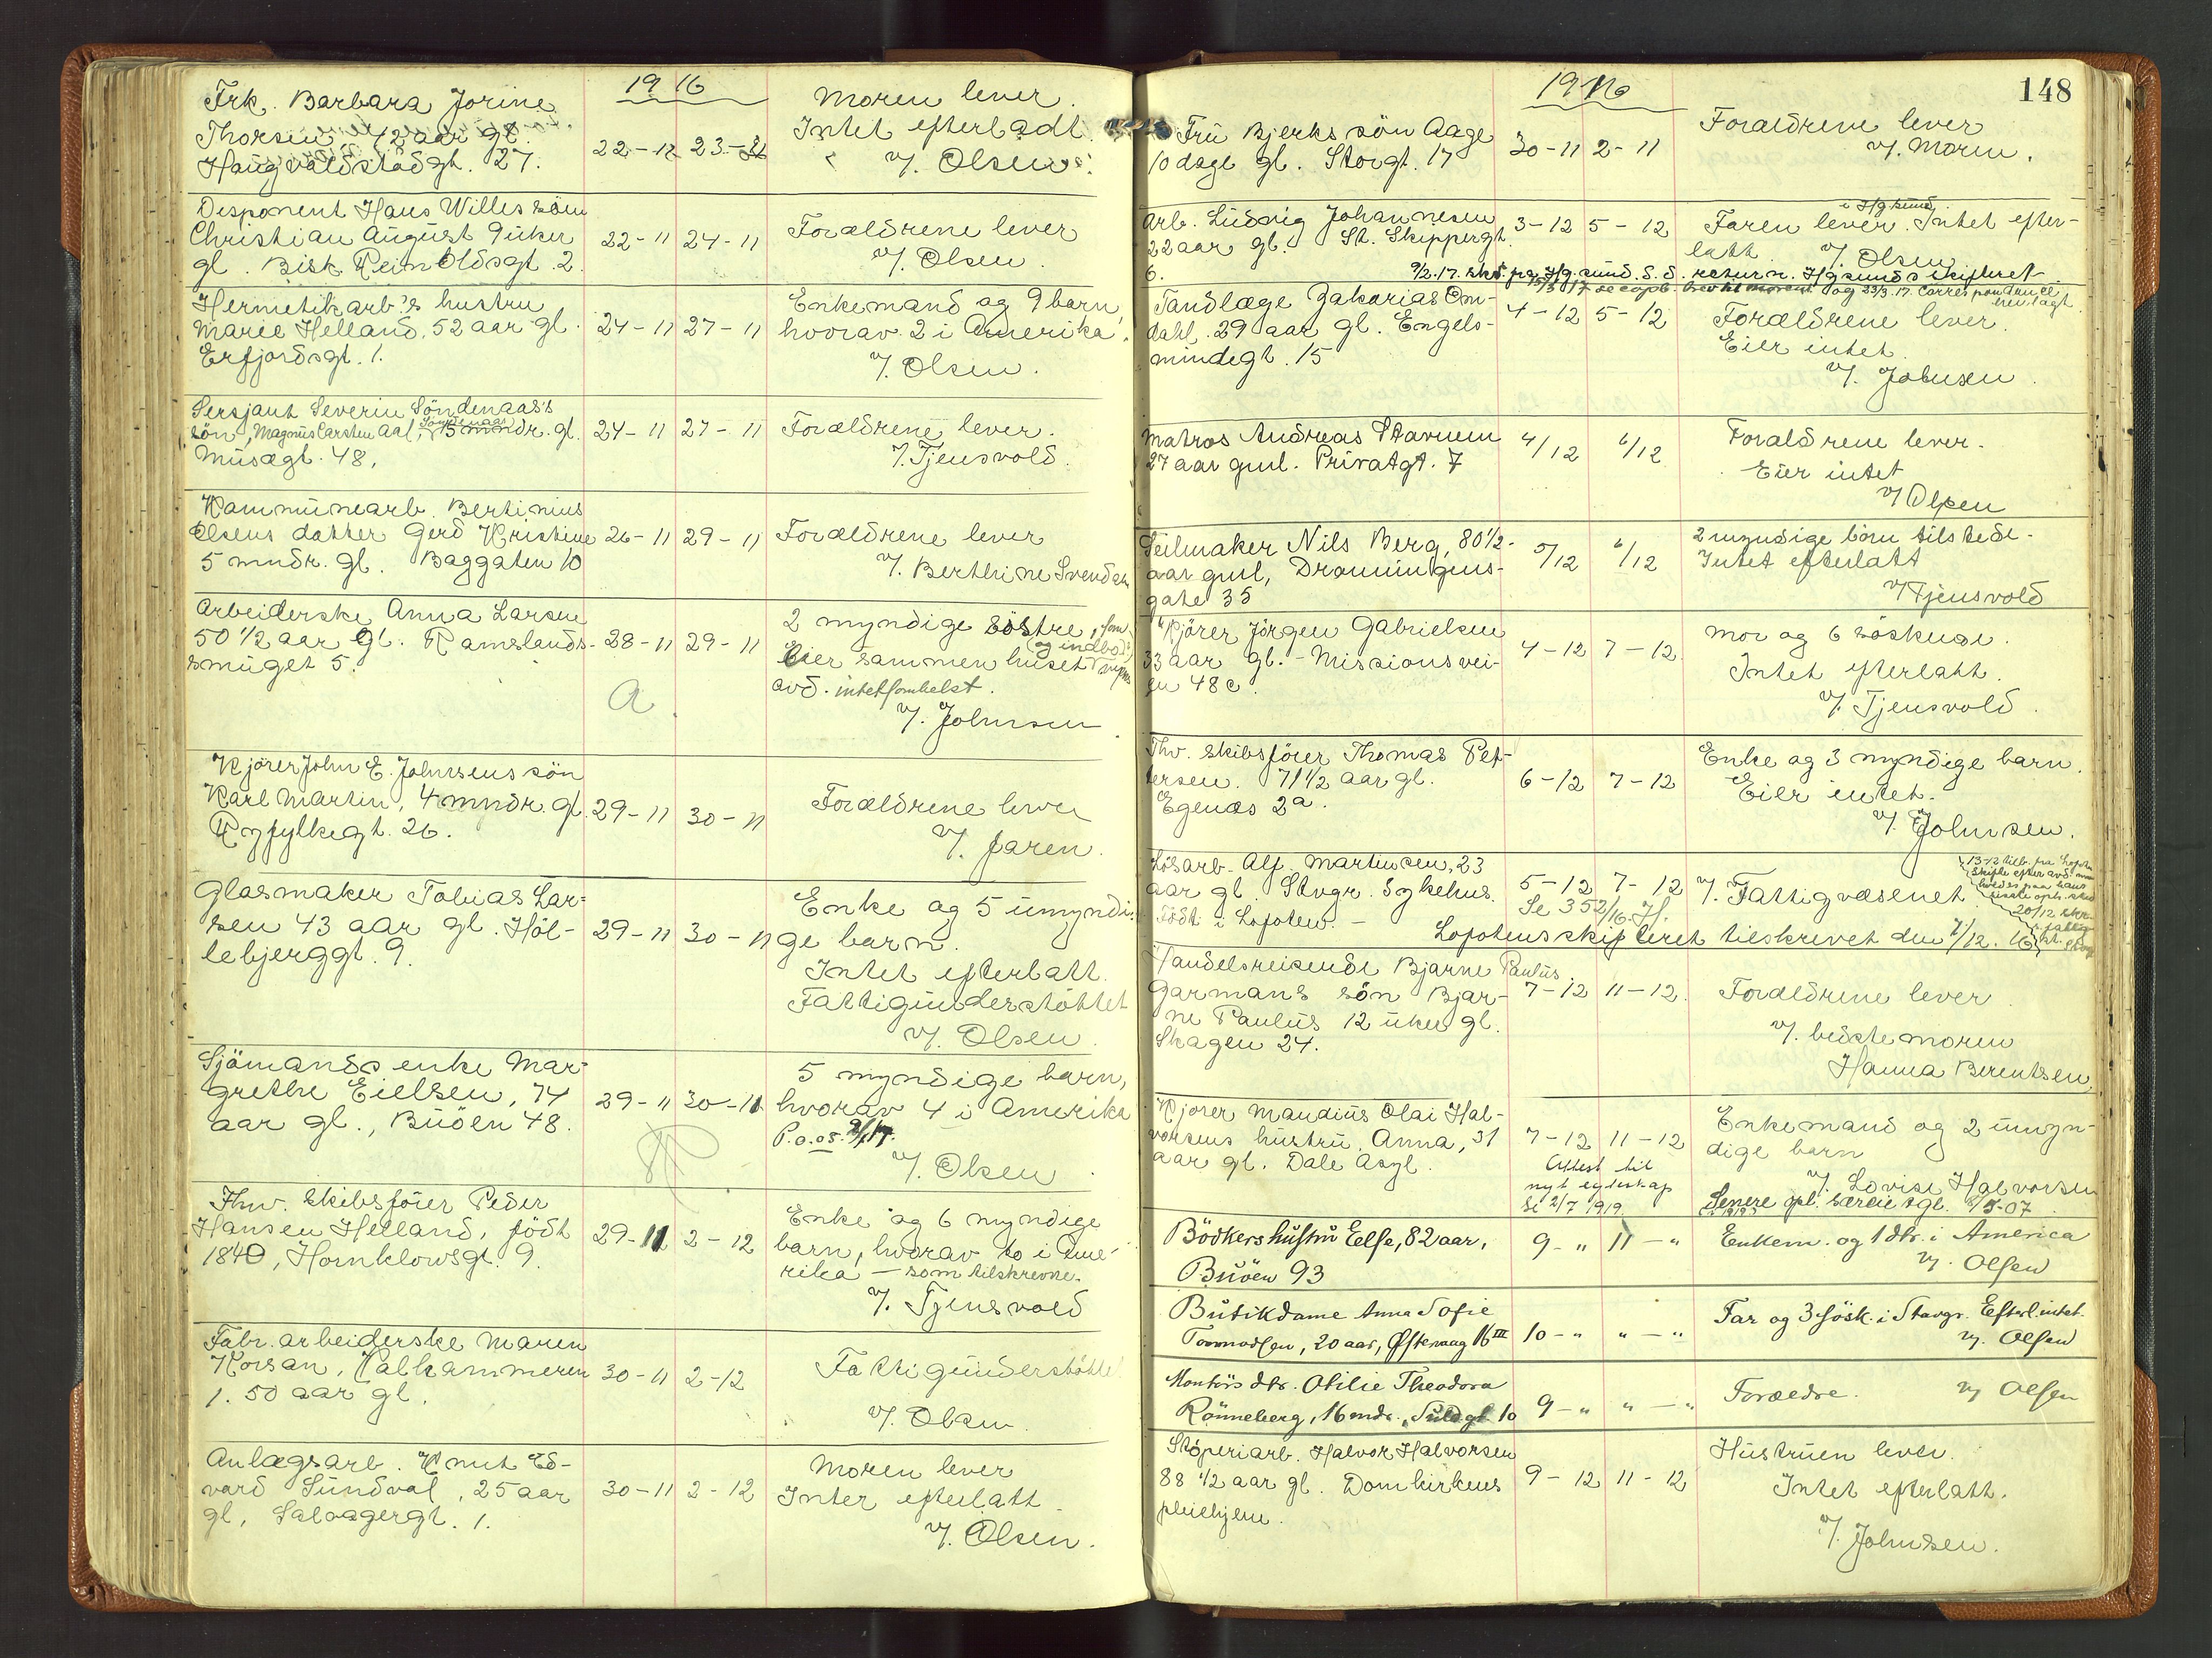 1916
Frk. Barbara Jorine
Thorsen 42 aar gl.
Haugvaldstadgt. 27.
22-12 23-
Moren lever.
Intet efterladt.
v/. Olsen.
Disponent Hans Willes søn
Christian August 9 uker
gl. Bisk. Reinoldsgt. 2.
22-11 24-11
Forældrene lever
v/. Olsen.
Hermetikarb.'s hustru
Marie Helland, 52 aar gl.
Erfjordsgt. 1.
24-11 27-11
Enkemand og 9 barn,
hvorav 2 i Amerika.
v/. Olsen.
Sersjant Severin Söndenaas's
sön, Magnus Carsten Aal, Söndenaas 15 mndr. gl.
Musægt. 48.
24-11 27-11
Forældrene lever.
v/. Tjensvold.
Kommunearb. Bertinius
Olsens datter Gerd Kristine
5 mndr. gl. Baggaten 10
26-11 29-11
Forældrene lever
v/. Berthine Svendsen
Arbeiderske Anna Larsen
50 1/2 aar gl. Ramslands-
smuget 5.
28-11 29-11
a.
2 myndige söstre, som
(og indbo)
Eier sammen huset
avd. intetsomhelst.
v/. Johnsen
Kjörer John E. Johnsens sön
Karl Martin, 4 mndr. gl.
Ryfylkegt. 26.
29-11 30-11
Forældrene lever
v/. faren.
Glasmaker Tobias Lar-
sen 43 aar gl. Höl-
lebjerggt. 9.
29-11 30-11
Enke og 5 umyndi-
ge barn.
Intet efterlatt.
Fattigunderstöttet
v/. Olsen.
Sjömands enke Mar-
grethe Eielsen, 74
aar gl., Buöen 48.
29-11 30-11
5 myndige barn,
hvorav 4 i Amerika
P.o.os.
v/. Olsen.
Fhv. skibsförer Peder
Hansen Helland, född
1840, Hornklowsgt. 9.
29-11 2-12
Enke og 6 myndige
barn, hvorav to i Ame-
rika — som tilskreves.
v/. Tjensvold
Fabr. arbeiderske Maren
Korsan, Kalhammeren
1. 50 aar gl.
30-11 2-12
Fattigunderstöttet
v/. Olsen
Anlægsarb. Knut Ed-
vard Sundval, 25 aar
gl, Salvagergt. 1.
30-11 2-12
Moren lever
Inter efterlatt.
v/. Olsen.
1916
148
Fru Bjerks sön Aage
10 dage gl. Storgt. 17
30-11 2-11
Forældrene lever
v/. Moren.
Arb. Ludvig Johannesen
22 aar gl. St. Skippergt.
6.
3-12 5-12
i Hg.sund.
Faren lever. Intet efter-
latt. v/. Olsen
9/2.17. skr. fra Hg.sund. S.d. return. Hg.sunds skifteret
og 23/3.17. Correspondance
Tandlæge Zakarias Om-
dahl. 29 aar gl. Engels-
mindegt. 15
4-12 5-12
Forældrene lever.
Eier intet.
v/. Johnsen.
Matros Andreas Stavnem
27 aar gml. Privatgt. 7
4/12 6/12
Forældrene lever.
Eier intet
v/ Olsen
Seilmaker Nils Berg, 80 1/2-
aar gml, Dronningens-
gate 35
5/12 6/12
2 myndige börn tilstede.
Intet efterlatt
v/ Tjensvold
Kjörer Jörgen Gabrielsen
33 aar gl. - Missionsvei-
en 48c.
4-12 7-12
Mor og 6 söskende.
Intet efterlatt.
v/. Tjensvold.
Fhv. skibsförer Thomas Pet-
tersen. 71 1/2 aar gl.
Egenæs 2a.
6-12 7-12
Enke og 3 myndige barn.
Eier intet.
v/. Johnsen.
Lösarb. Alf. Martinsen, 23
aar gl. Stvgr. Sykehus.
Född i Lofoten. -
5-12 7-12
Se 353/16. Jf.
v/. Fattigvæsenet.
Lofotens skifteret tilskrevet den 7/12. 16
Handelsreisende Bjarne Paulus
Garmans sön Bjar-
ne Paulus 12 uker gl.
Skagen 24.
7-12 11-12.
Forældrene lever
v/. bedstemoren
Hanna Berentsen.
Kjörer Mandius Olai Hal-
vorsens hustru, Anna, 31
aar gl. Dale Asyl.
7-12 11-12
Attest til
nyt egteskap
Se 2/7 1919.
Enkemand og 2 umyn-
dige barn
v/. Lovise Halvorsen
Bödkers hustru Eelse, 82 aar,
Buöen 93
9-" 11-"
Enkem. og 1 dtr. i America
v/. Olsen
Butikdame Anna Sofie
Tormodsen, 20 aar, Østervaag 16 III
10-" "-"
Far og 3 sösk. i Stavgr. Efterl. intet.
v/. Olsen
Montörs dtr. Otilie Theodora
Rönneberg, 16 mdr., Suldgt. 10
9-" "-"
Forældre. v/ Olsen
Stöperiarb. Halvor Halvorsen
88 1/2 aar gl. Domkirkens
pleiehjem.
9-12 11-12
Hustruen lever.
Intet efterlatt.
v/. Johnsen.